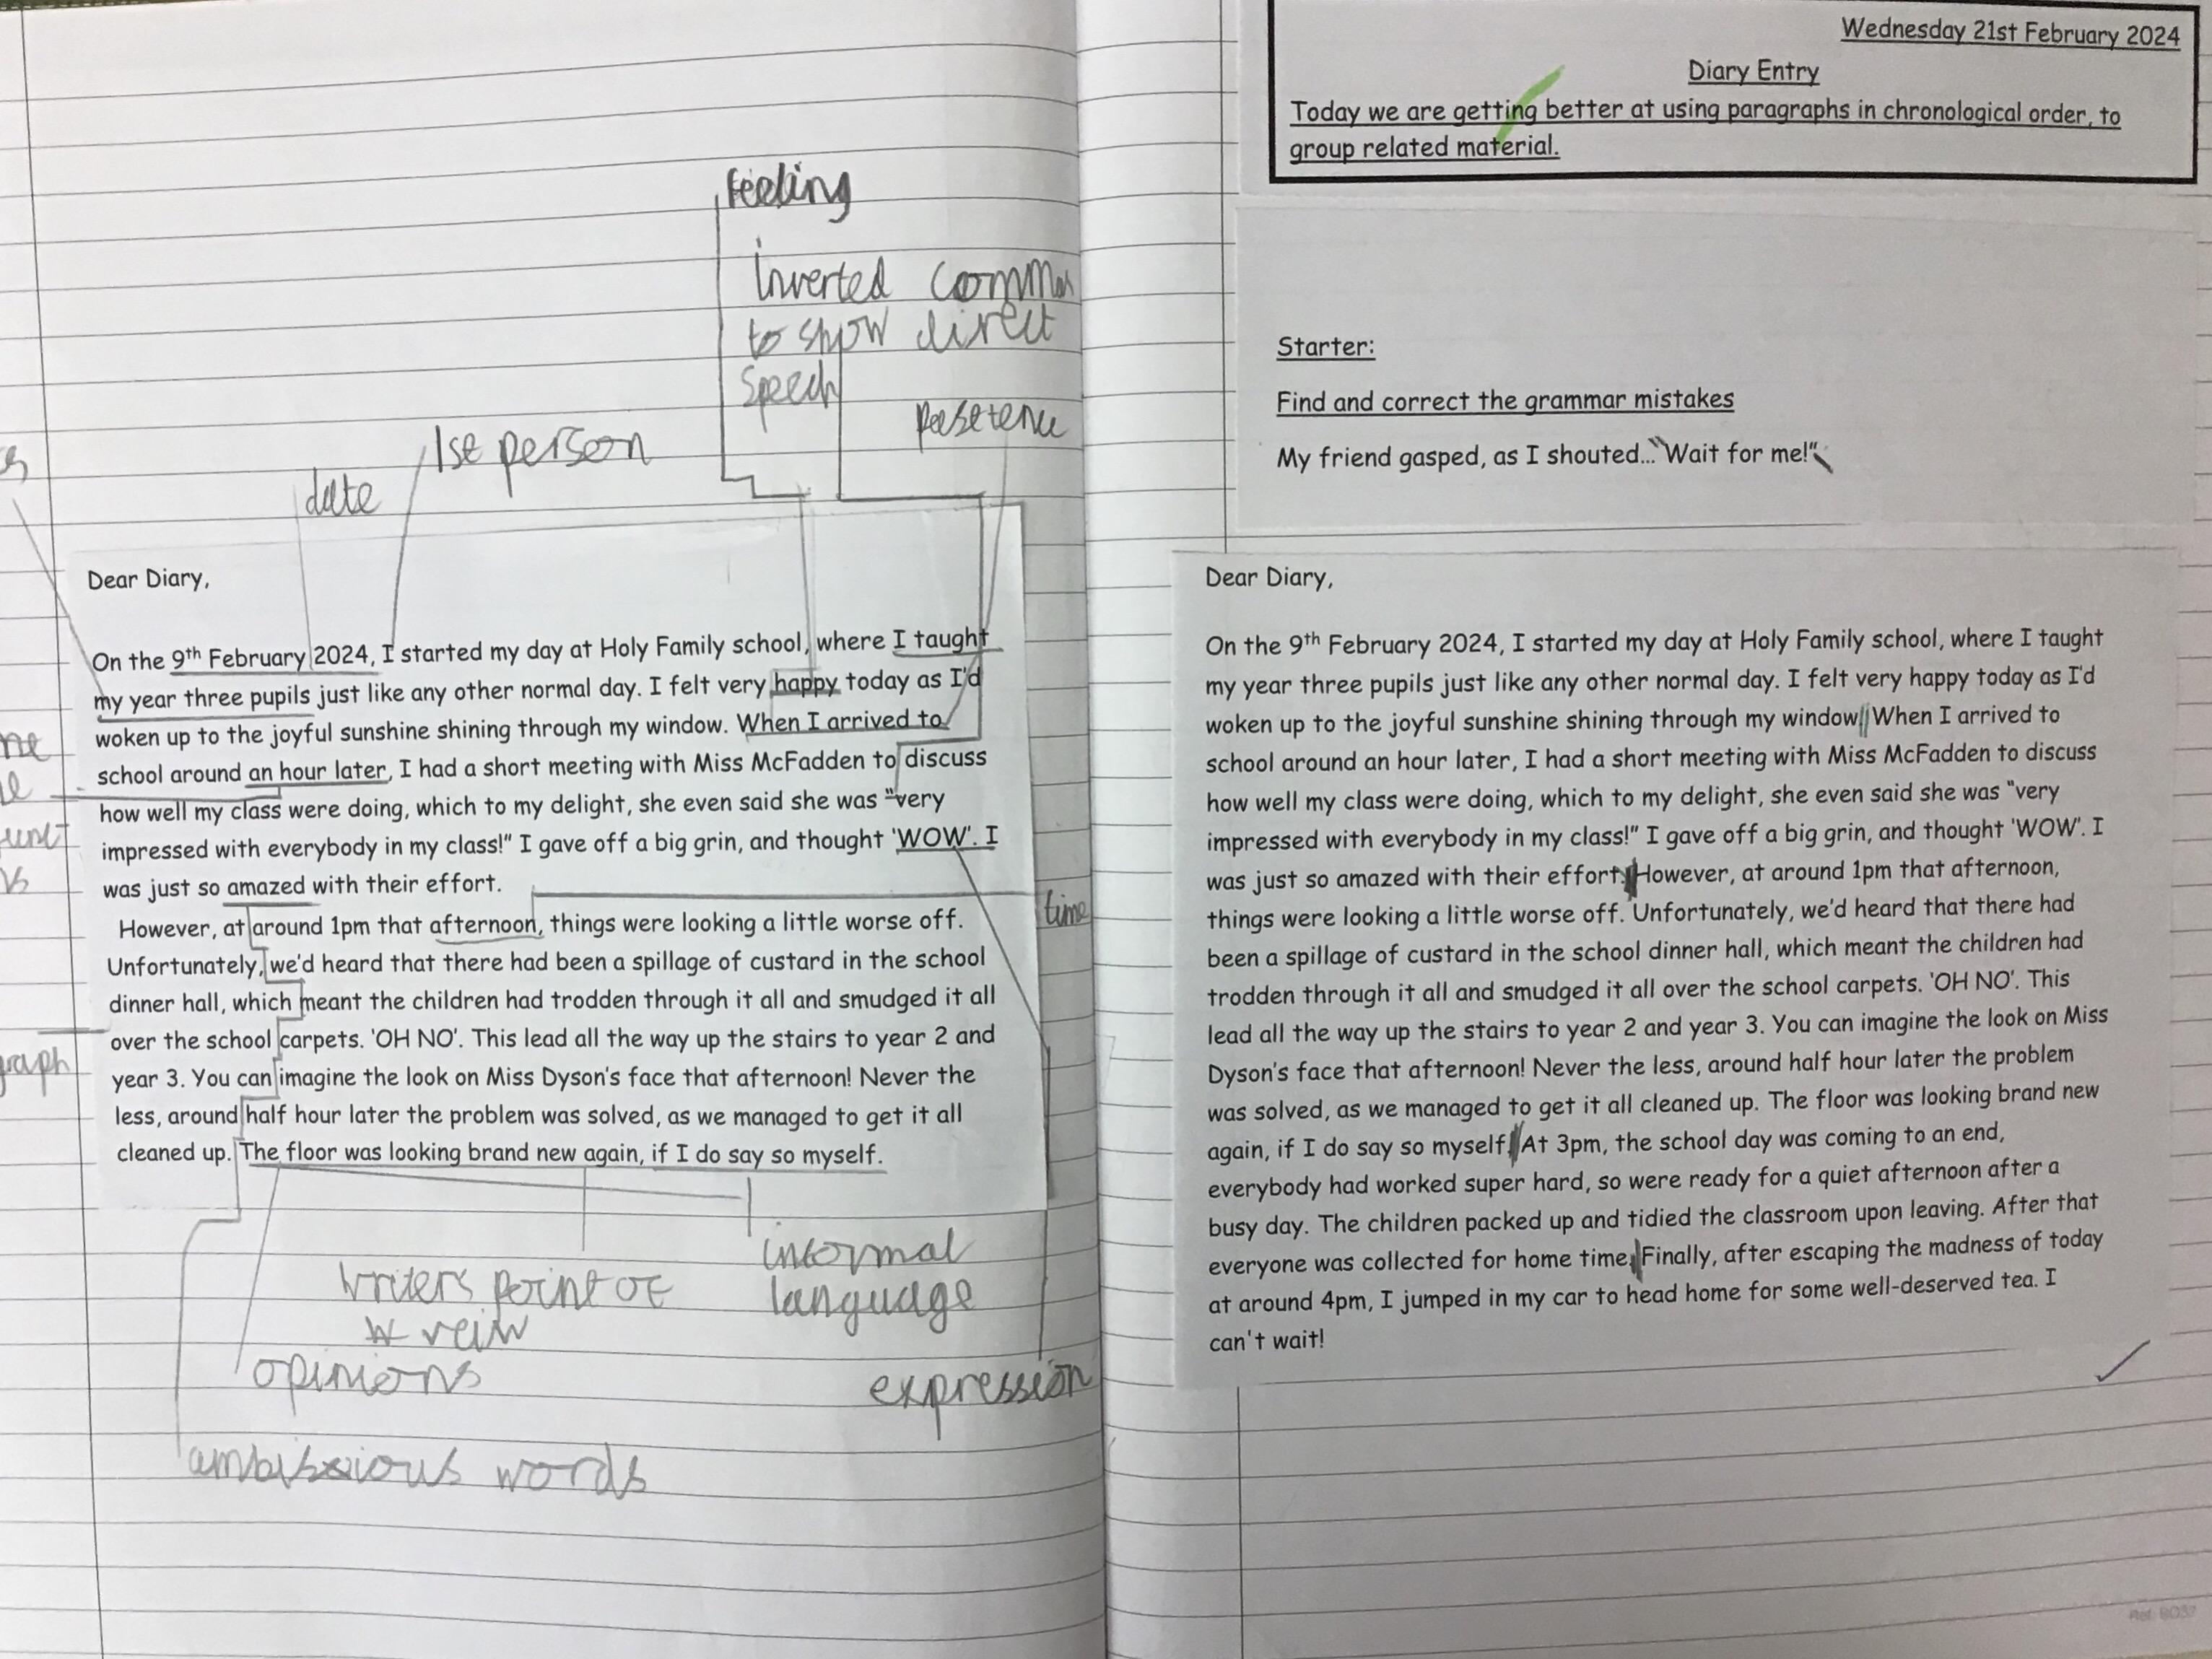 Feeling
inverted commas
to show direct
speech
past tense
1st person
date
Dear Diary,
On the 9th February 2024, I started my day at Holy Family school, where I taught
my year three pupils just like any other normal day. I felt very happy today as I'd
woken up to the joyful sunshine shining through my window. When I arrived to
school around an hour later, I had a short meeting with Miss McFadden to discuss
how well my class were doing, which to my delight, she even said she was "very
impressed with everybody in my class!" I gave off a big grin, and thought 'WOW'. I
was just so amazed with their effort.
time
However, at around 1pm that afternoon, things were looking a little worse off.
Unfortunately, we'd heard that there had been a spillage of custard in the school
dinner hall, which meant the children had trodden through it all and smudged it all
over the school carpets. 'OH NO'. This lead all the way up the stairs to year 2 and
year 3. You can imagine the look on Miss Dyson's face that afternoon! Never the
less, around half hour later the problem was solved, as we managed to get it all
cleaned up. The floor was looking brand new again, if I do say so myself.
graph
informal
language
writers point of
veiw
opinions
expression
ambissious words
Wednesday 21st February 2024
Diary Entry
Today we are getting better at using paragraphs in chronological order, to
group related material.
Starter:
Find and correct the grammar mistakes
My friend gasped, as I shouted..."Wait for me!"
Dear Diary,
On the 9th February 2024, I started my day at Holy Family school, where I taught
my year three pupils just like any other normal day. I felt very happy today as I'd
woken up to the joyful sunshine shining through my window.// When I arrived to
school around an hour later, I had a short meeting with Miss McFadden to discuss
how well my class were doing, which to my delight, she even said she was "very
impressed with everybody in my class!" I gave off a big grin, and thought 'WOW'. I
was just so amazed with their effort.// However, at around 1pm that afternoon,
things were looking a little worse off. Unfortunately, we'd heard that there had
been a spillage of custard in the school dinner hall, which meant the children had
trodden through it all and smudged it all over the school carpets. 'OH NO'. This
lead all the way up the stairs to year 2 and year 3. You can imagine the look on Miss
Dyson's face that afternoon! Never the less, around half hour later the problem
was solved, as we managed to get it all cleaned up. The floor was looking brand new
again, if I do say so myself.// At 3pm, the school day was coming to an end,
everybody had worked super hard, so were ready for a quiet afternoon after a
busy day. The children packed up and tidied the classroom upon leaving. After that
everyone was collected for home time.// Finally, after escaping the madness of today
at around 4pm, I jumped in my car to head home for some well-deserved tea. I
can't wait!